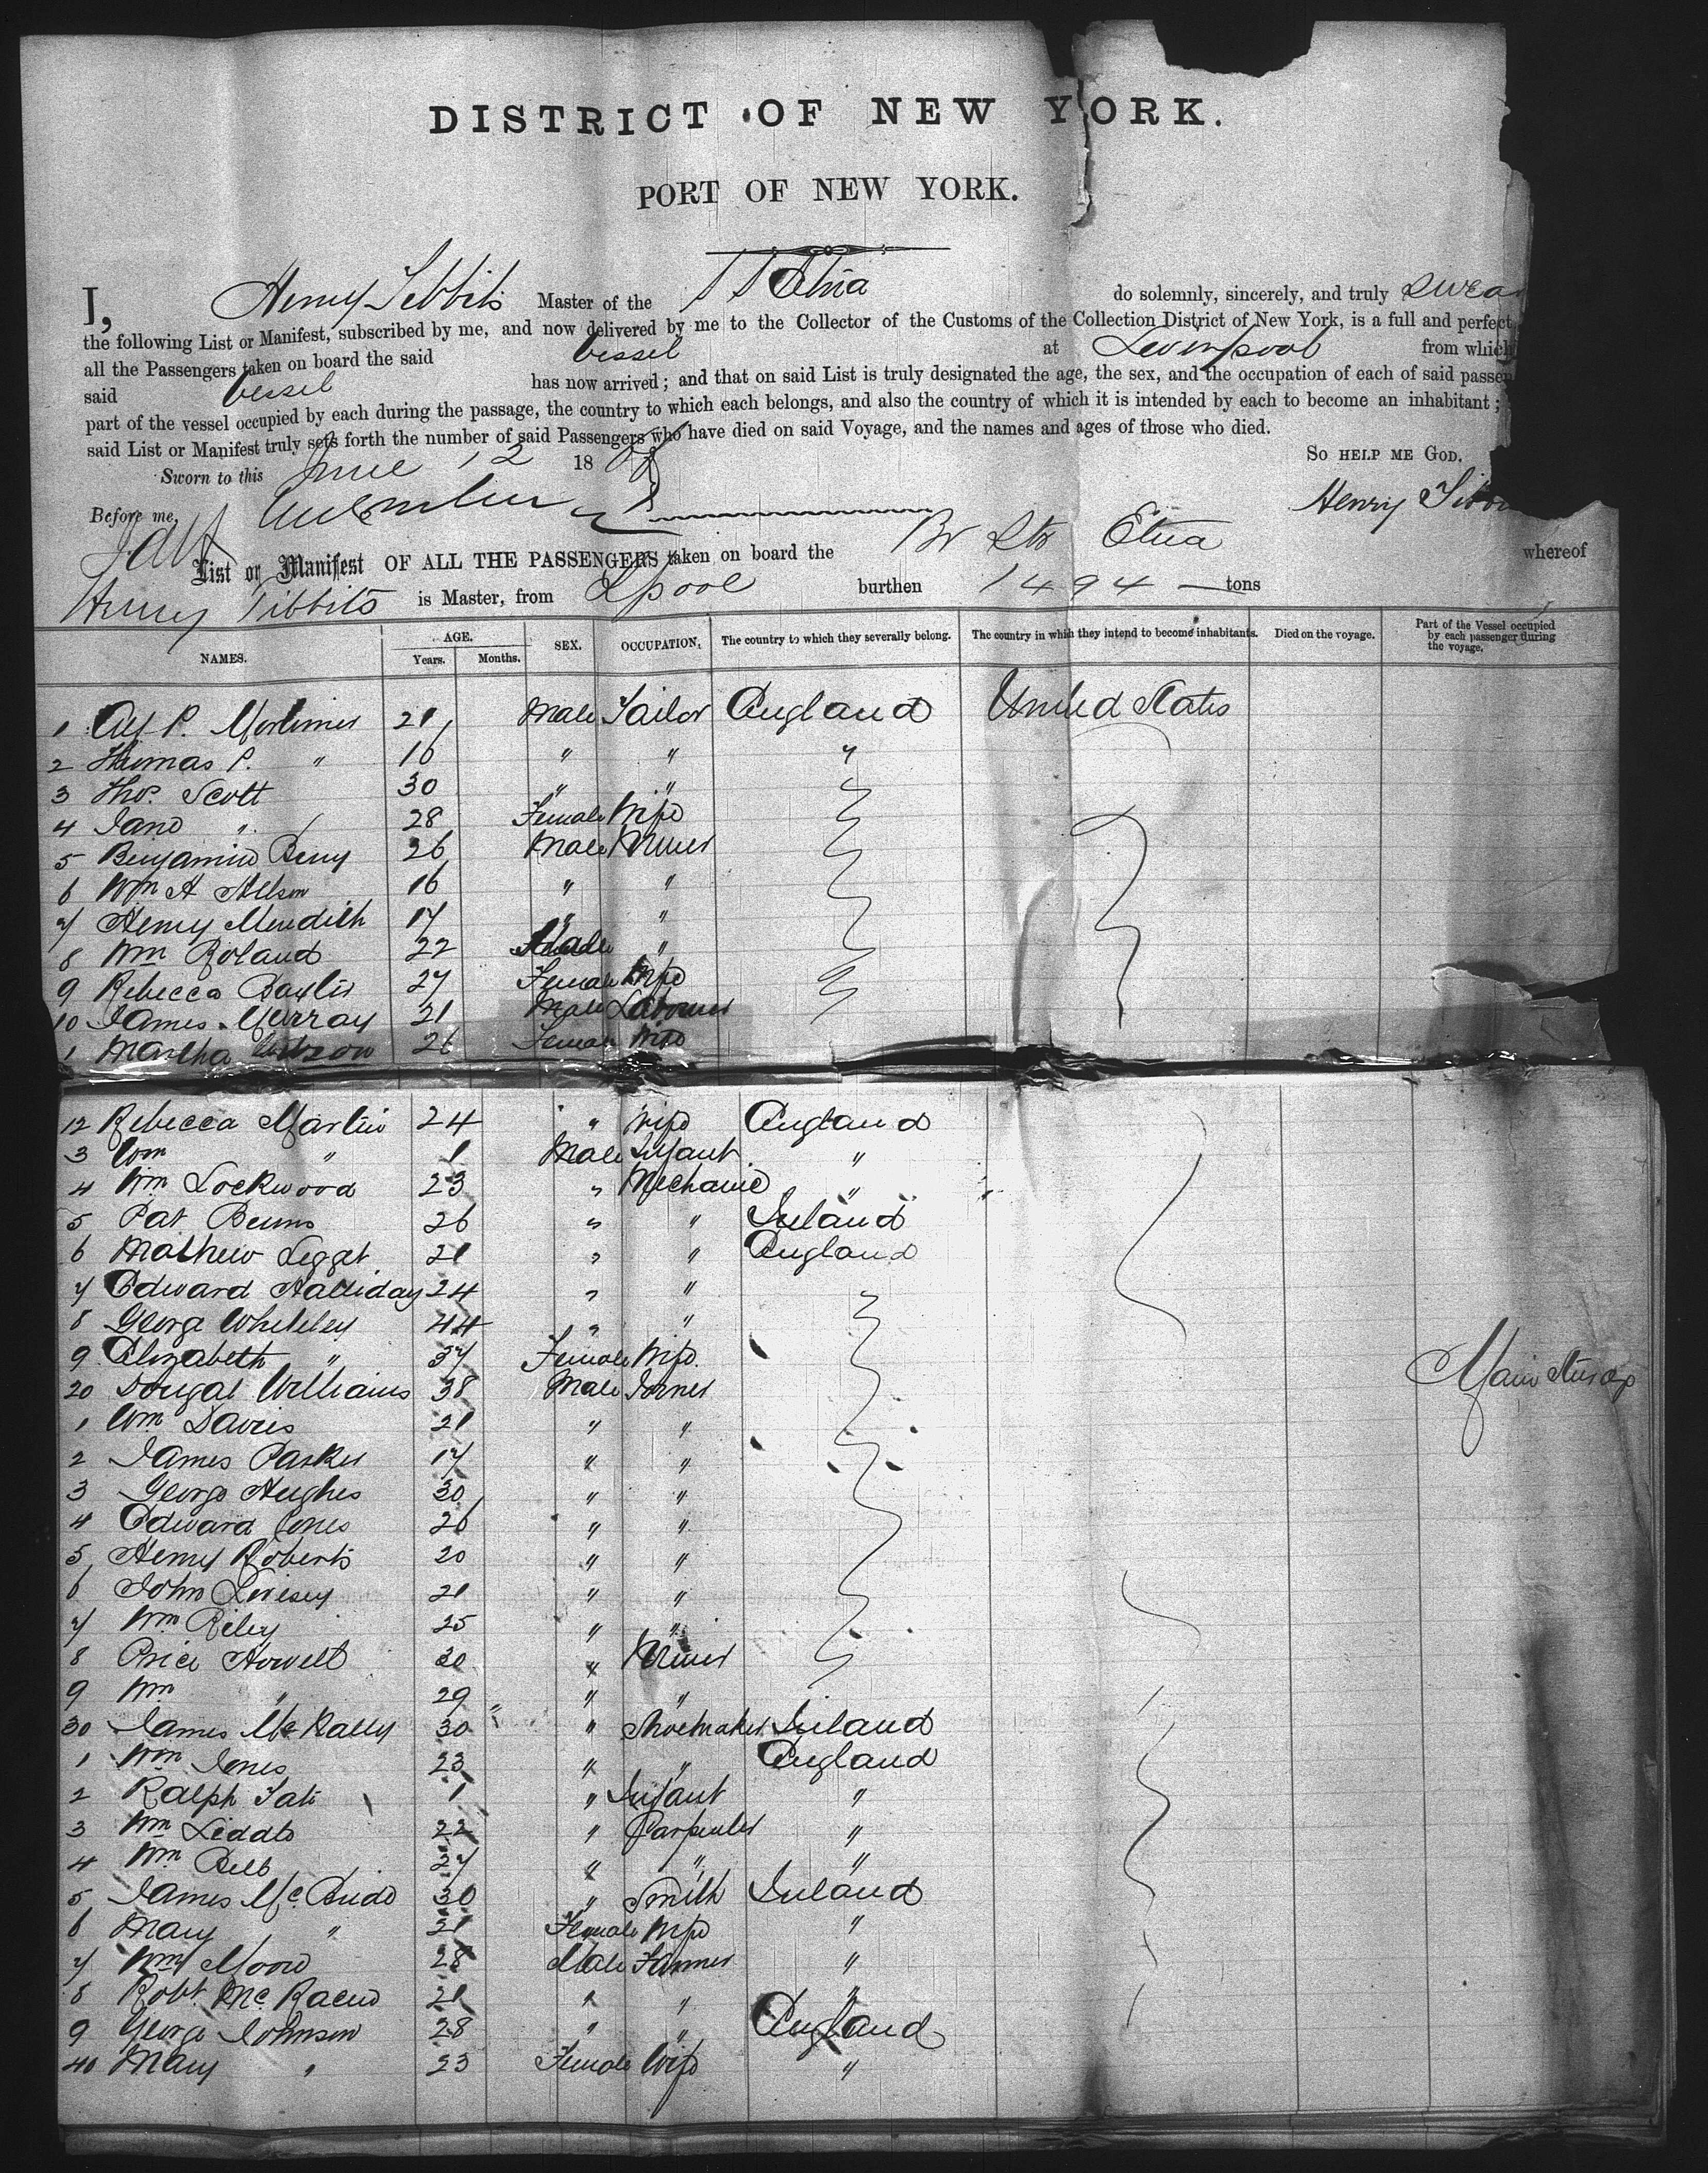 DISTRICT OF NEW YORK.
PORT OF NEW YORK.
I, Henry Tibbits Master of the SS Etna do solemnly, sincerely, and truly swear
the following List or Manifest, subscribed by me, and now delivered by me to the Collector of the Customs of the Collection District of New York, is a full and perfect
all the Passengers taken on board the said vessel at Liverpool from which
said vessel has now arrived; and that on said List is truly designated the age, the sex, and the occupation of each of said passen
part of the vessel occupied by each during the passage, the country to which each belongs, and also the country of which it is intended by each to become an inhabitant;
said List or Manifest truly sets forth the number of said Passengers who have died on said Voyage, and the names and ages of those who died.
So help me God,
Sworn to this June 12 18
Before me, Henry
List or Manifest OF ALL THE PASSENGERS taken on board the Br Str Etna whereof
Henry Tibbits is Master, from Lpool burthen 1494 tons
NAMES. AGE. Years. Months. SEX. OCCUPATION. The country to which they severally belong. The country in which they intend to become inhabitants. Died on the voyage. Part of the Vessel occupied by each passenger during the voyage.
1 Alf P. Mortimer 21 Male Tailor England United States
2 Thomas P. " 16 " " "
3 Thos. Scott 30 " "
4 Jane " 28 Female Wife
5 Benjamin Berry 26 Male Miner
6 Wm A Nelson 16 " "
7 Henry Meredith 17 " "
8 Wm Roland 22 Male "
9 Rebecca 27 Female Wife
10 James Murray 21 Male Laborer
1 Martha 26 Female Wife
12 Rebecca Martin 24 " Wife England
3 Wm " 1 Male Infant "
4 Wm Lockwood 23 " Mechanic "
5 Pat Burns 26 " " Ireland
6 Mathew Legget 21 " " England
7 Edward Halliday 24 " "
8 George Whiteley 44 " "
9 Elizabeth " 37 Female Wife
20 Dougal Williams 38 Male Joiner
1 Wm Davies 21 " "
2 James Parker 17 " "
3 George Hughes 30 " "
4 Edward Jones 26 " "
5 Henry Roberts 20 " "
6 John Livesey 21 " "
7 Wm Riley 25 " "
8 Price Howell 30 " Miner
9 Wm " 29 " "
30 James McNally 30 " Shoemaker Ireland
1 Wm Jones 23 " " England
2 Ralph Tate 1 " Infant "
3 Wm 22 " Carpenter "
4 Wm Bell 27 " " "
5 James McBride 30 " Smith Ireland
6 Mary " 21 Female Wife "
7 Wm Moore 28 Male Farmer "
8 Robt. 21 " " "
9 George Johnson 28 " " England
40 Mary " 23 Female Wife "
Main Steerage